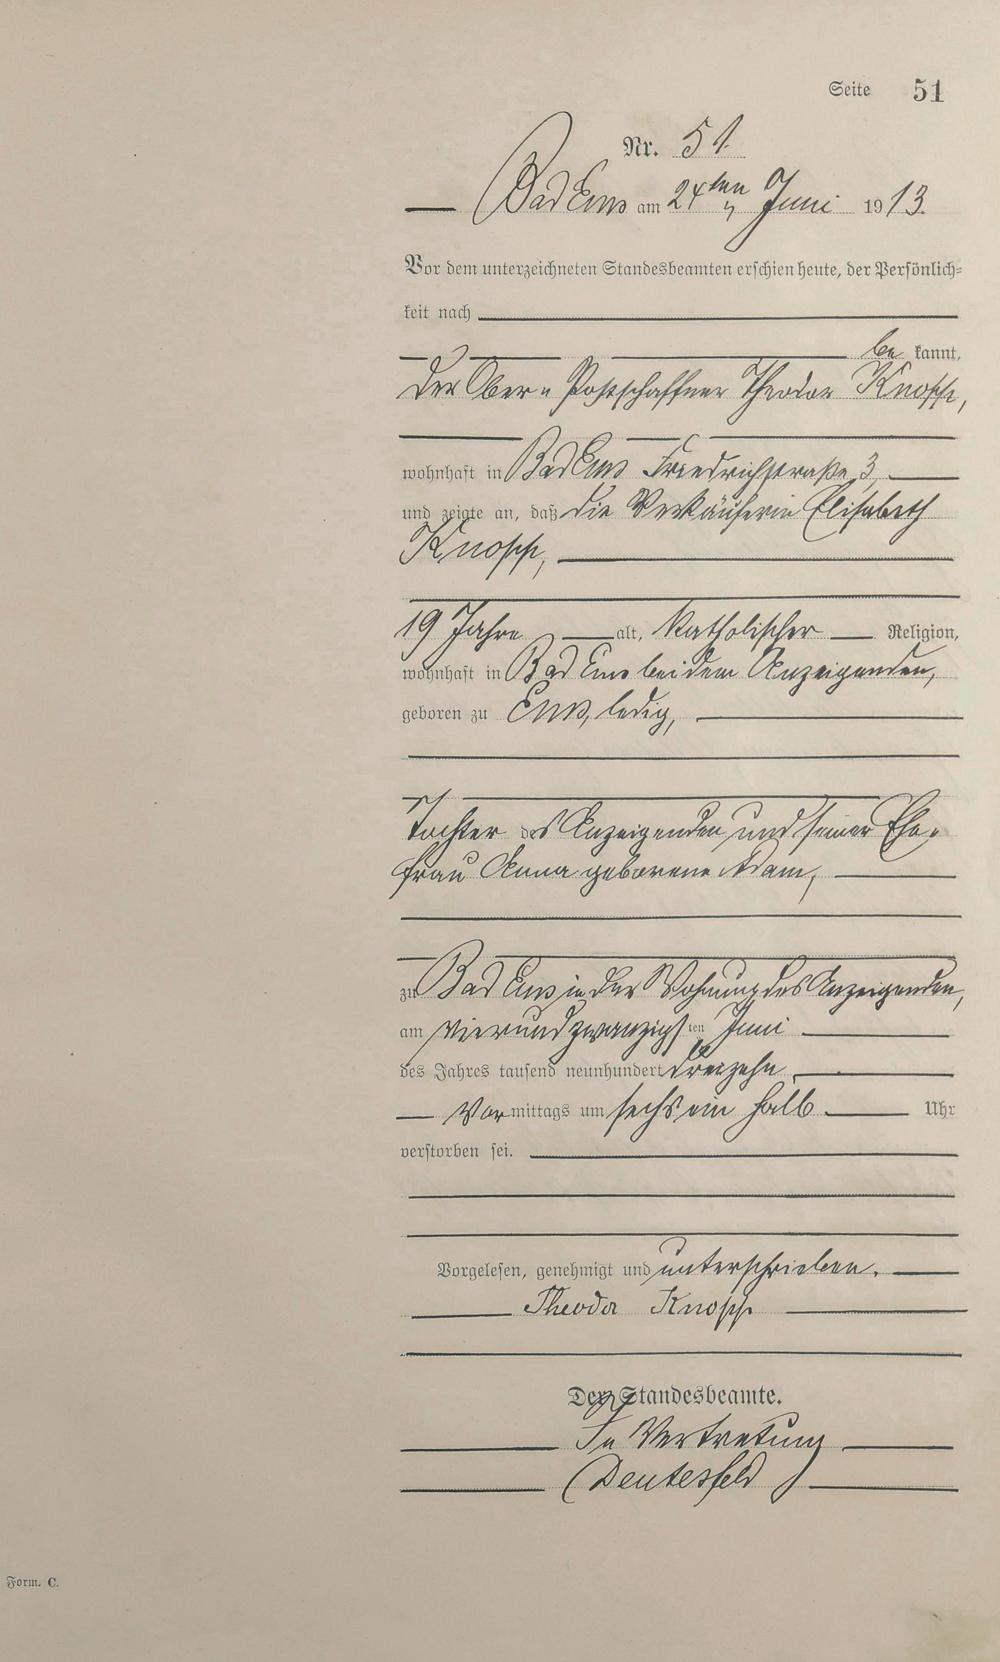 Seite 51
Nr. 51
Bad Ems am 24ten Juni 1913.
Vor dem unterzeichneten Standesbeamten erschien heute, der Persönlich=
keit nach
be kannt,
der Ober= Postschaffner Theodor Knopp,
wohnhaft in Bad Ems Friedrichstraße 3,
und zeigte an, daß die Verkäuferin Elisabeth
Knopp,
19 Jahre alt, katholischer Religion,
wohnhaft in Bad Ems bei dem Anzeigenden,
geboren zu Ems, ledig,
Tochter des Anzeigenden und seiner Ehe=
frau Anna geborene Adam,
zu Bad Ems in der Wohnung des Anzeigenden,
am vierundzwanzigsten Juni
des Jahres tausend neunhundert dreizehn
Vormittags um sechs ein halb Uhr
verstorben sei.
Vorgelesen, genehmigt und unterschrieben.
Theodor Knopp
Der Standesbeamte.
In Vertretung
Form. C.